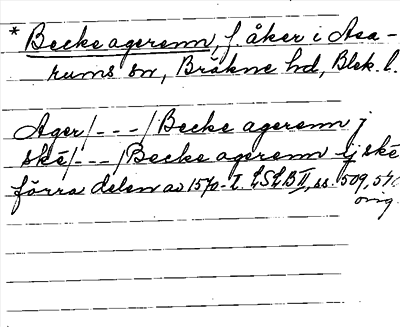 * Becke agerenn, f. åker i Asa-
rums sn, Bräkne hd, Blek. l.
Ager/---/Becke agerenn j
ské/---/Becke agerenn ij ské
förra delen av 1570-t. LSLB II, ss. 509, 510
orig.